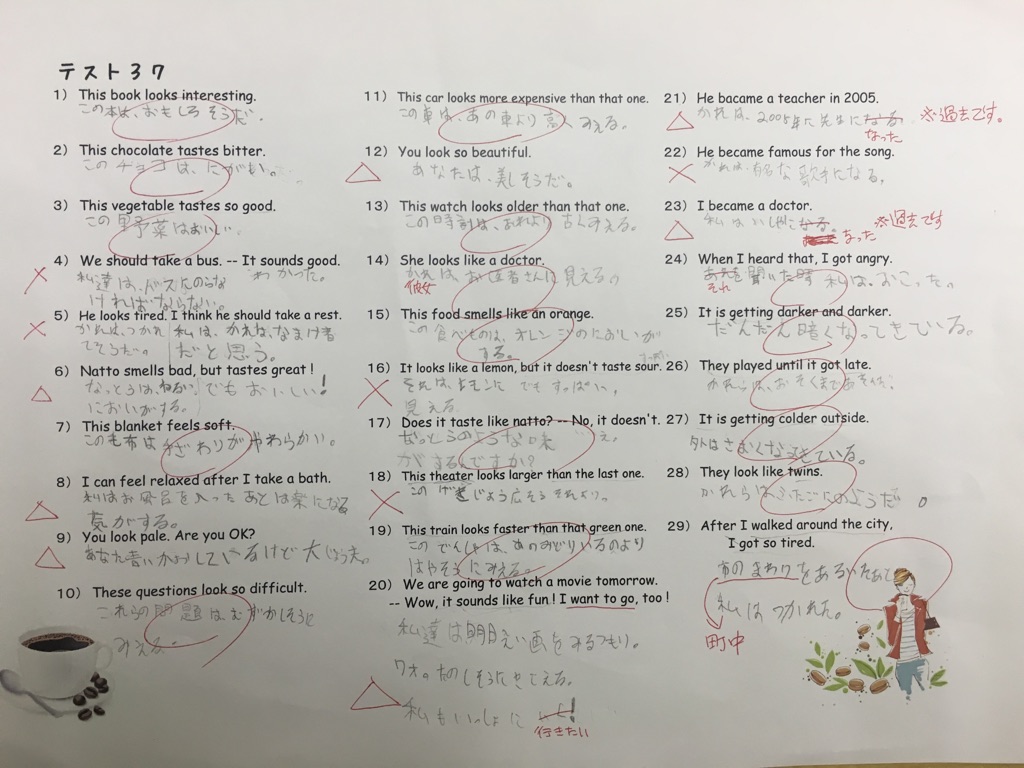 テスト37
1) This book looks interesting.
この本は、おもしろそうだ.
2) This chocolate tastes bitter.
このチョコは、にがい。
3) This vegetable tastes so good.
この野菜はおいしい.
4) We should take a bus. -- It sounds good.
私達は、バスにのらな わかった。
ければばならない。
5) He looks tired. I think he should take a rest.
かれは、つかれ 私は、かれは、なまけ者
てそうだ。 だと思う。
6) Natto smells bad, but tastes great !
なっとうは、わるい でもおいしい!
においがする。
7) This blanket feels soft.
この毛布は手ざわりがやわらかい。
8) I can feel relaxed after I take a bath.
私はお風呂を入ったあとは楽になる
気がする。
9) You look pale. Are you OK?
あなた青いかおしているけど大じょう夫。
10) These questions look so difficult.
これらの問題はむずかしそうに
みえる.
11) This car looks more expensive than that one.
この車は、あの車より高くみえる。
12) You look so beautiful.
あなたは、美しそうだ。
13) This watch looks older than that one.
この時計は、あれより古くみえる。
14) She looks like a doctor.
かれは、お医者さんに見える。
彼女
15) This food smells like an orange.
この食べものは、オレンジのにおいが
する。
16) It looks like a lemon, but it doesn't taste sour.
それは、レモンに でもすっぱい,
見える
17) Does it taste like natto? -- No, it doesn't.
なっとうのような味
がするんですか?
18) This theater looks larger than the last one.
このげきじょう広そうそれより。
19) This train looks faster than that green one.
このでんしゃは、あのみどりいろのより
はやそうにみえる。
20) We are going to watch a movie tomorrow.
-- Wow, it sounds like fun ! I want to go, too !
私達は明日えい画をみるつもり。
ワオ。たのしそうにきこえる。
私もいっしょに !
行きたい
21) He bacame a teacher in 2005.
かれは、2005年に先生になる ※過去です。
なった
22) He became famous for the song.
かれは、有名な歌手になる,
23) I became a doctor.
私はいしゃになる ※過去です
なった
24) When I heard that, I got angry.
を聞いた時私は。おこった。
それ
25) It is getting darker and darker.
だんだん暗くなってきている。
26) They played until it got late.
かれらは、おそくまであそんだ
27) It is getting colder outside.
外はさむくなってきている。
28) They look like twins.
かれらはふたごにのようだ。
29) After I walked around the city,
I got so tired.
市のまわりをあるいたあと
私はつかれた。
町中